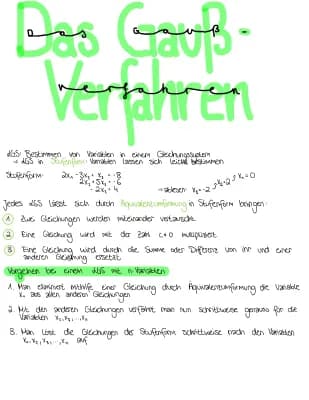 Das Gauß-
Verfahren
LGS: Bestimmen von Variablen in einem Gleichungssystem
→ LGS in Stufenform: Variablen lassen sich leicht bestimmen
Stufenform: 2x₁ - 3x₂ + x₃ = -8
2x₂ + 5x₃ = -6
-2x₃ = 4
→ ablesen: x₃ = -2, x₂ = 2, x₁ = 0
Jedes LGS lässt sich durch Äquivalenzumformung in Stufenform bringen:
1 Zwei Gleichungen werden miteinander vertauscht.
2 Eine Gleichung wird mit der Zahl c ≠ 0 multipliziert
3 Eine Gleichung wird durch die Summe oder Differenz von ihr und einer
anderen Gleichung ersetzt.
Vorgehen bei einem LGS mit n-Variablen
1. Man eliminiert mithilfe einer Gleichung durch Äquivalenzumformung die Variable
x₁ aus allen anderen Gleichungen
2. Mit den anderen Gleichungen verfährt man nun schrittweise genauso für die
Variablen x₂, x₃, ..., xₙ
3. Man löst die Gleichungen der Stufenform schrittweise nach den Variablen
x₁, x₂, x₃, ..., xₙ auf